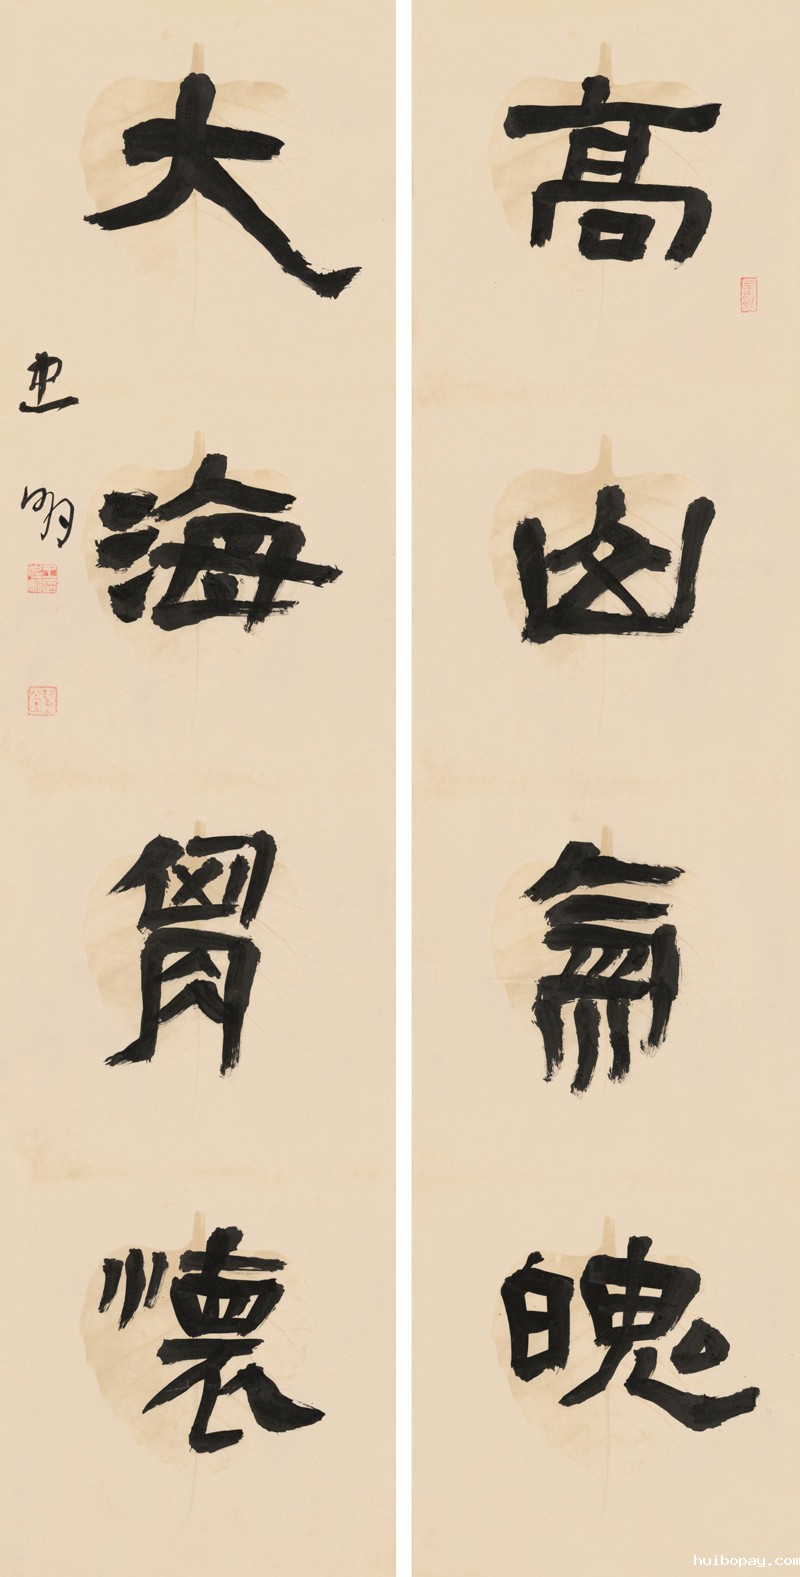 髙山氣魄
大海胷懷
忠明
huibopay.com